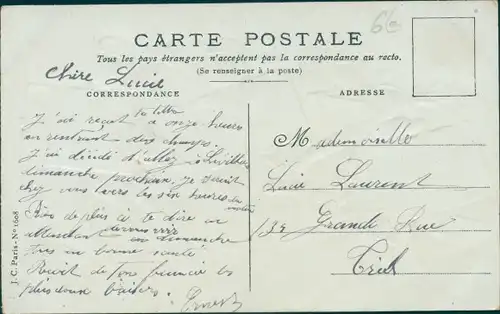 CARTE POSTALE
Tous les pays étrangers n'acceptent pas la correspondance au recto.
(Se renseigner à la poste)
CORRESPONDANCE
ADRESSE
Chère Lucie
J'ai reçut ta lettre à onze heures
en rentrant des champs.
J'ai décidé d'aller à
dimanche prochain, je serait
chez vous vers les six heures du matin
Rien de plus à te dire en
attendant dimanche
très en bonne santé
Reçoit de ton fiancé les
plus doux baisers.
Ernest
Mademoiselle
Lucie Laurent
132 Grande Rue
Triel
J. C. Paris - N° 1608